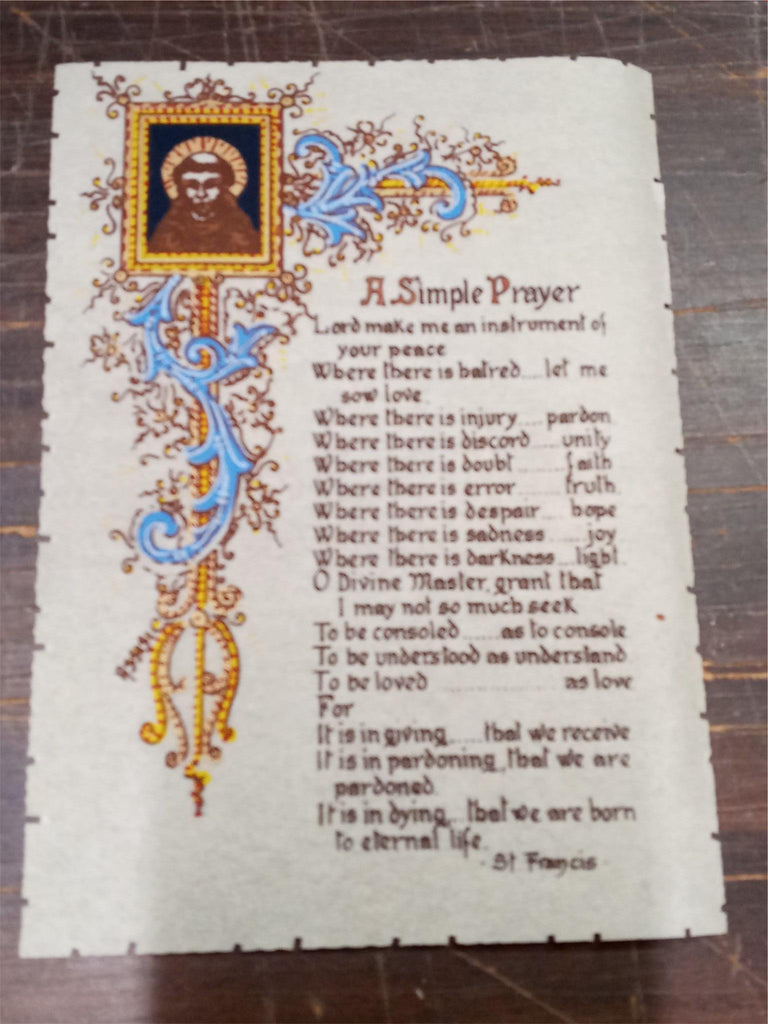 A Simple Prayer
Lord make me an instrument of
your peace
Where there is hatred....let me
sow love.
Where there is injury.....pardon
Where there is discord.....unity
Where there is doubt.........faith
Where there is error........truth.
Where there is despair....hope
Where there is sadness......joy
Where there is darkness...light.
O Divine Master, grant that
I may not so much seek
To be consoled.......as to console
To be understood as understand
To be loved..................as love
For
It is in giving......that we receive
It is in pardoning, that we are
pardoned.
It is in dying...that we are born
to eternal life.
- St Francis -